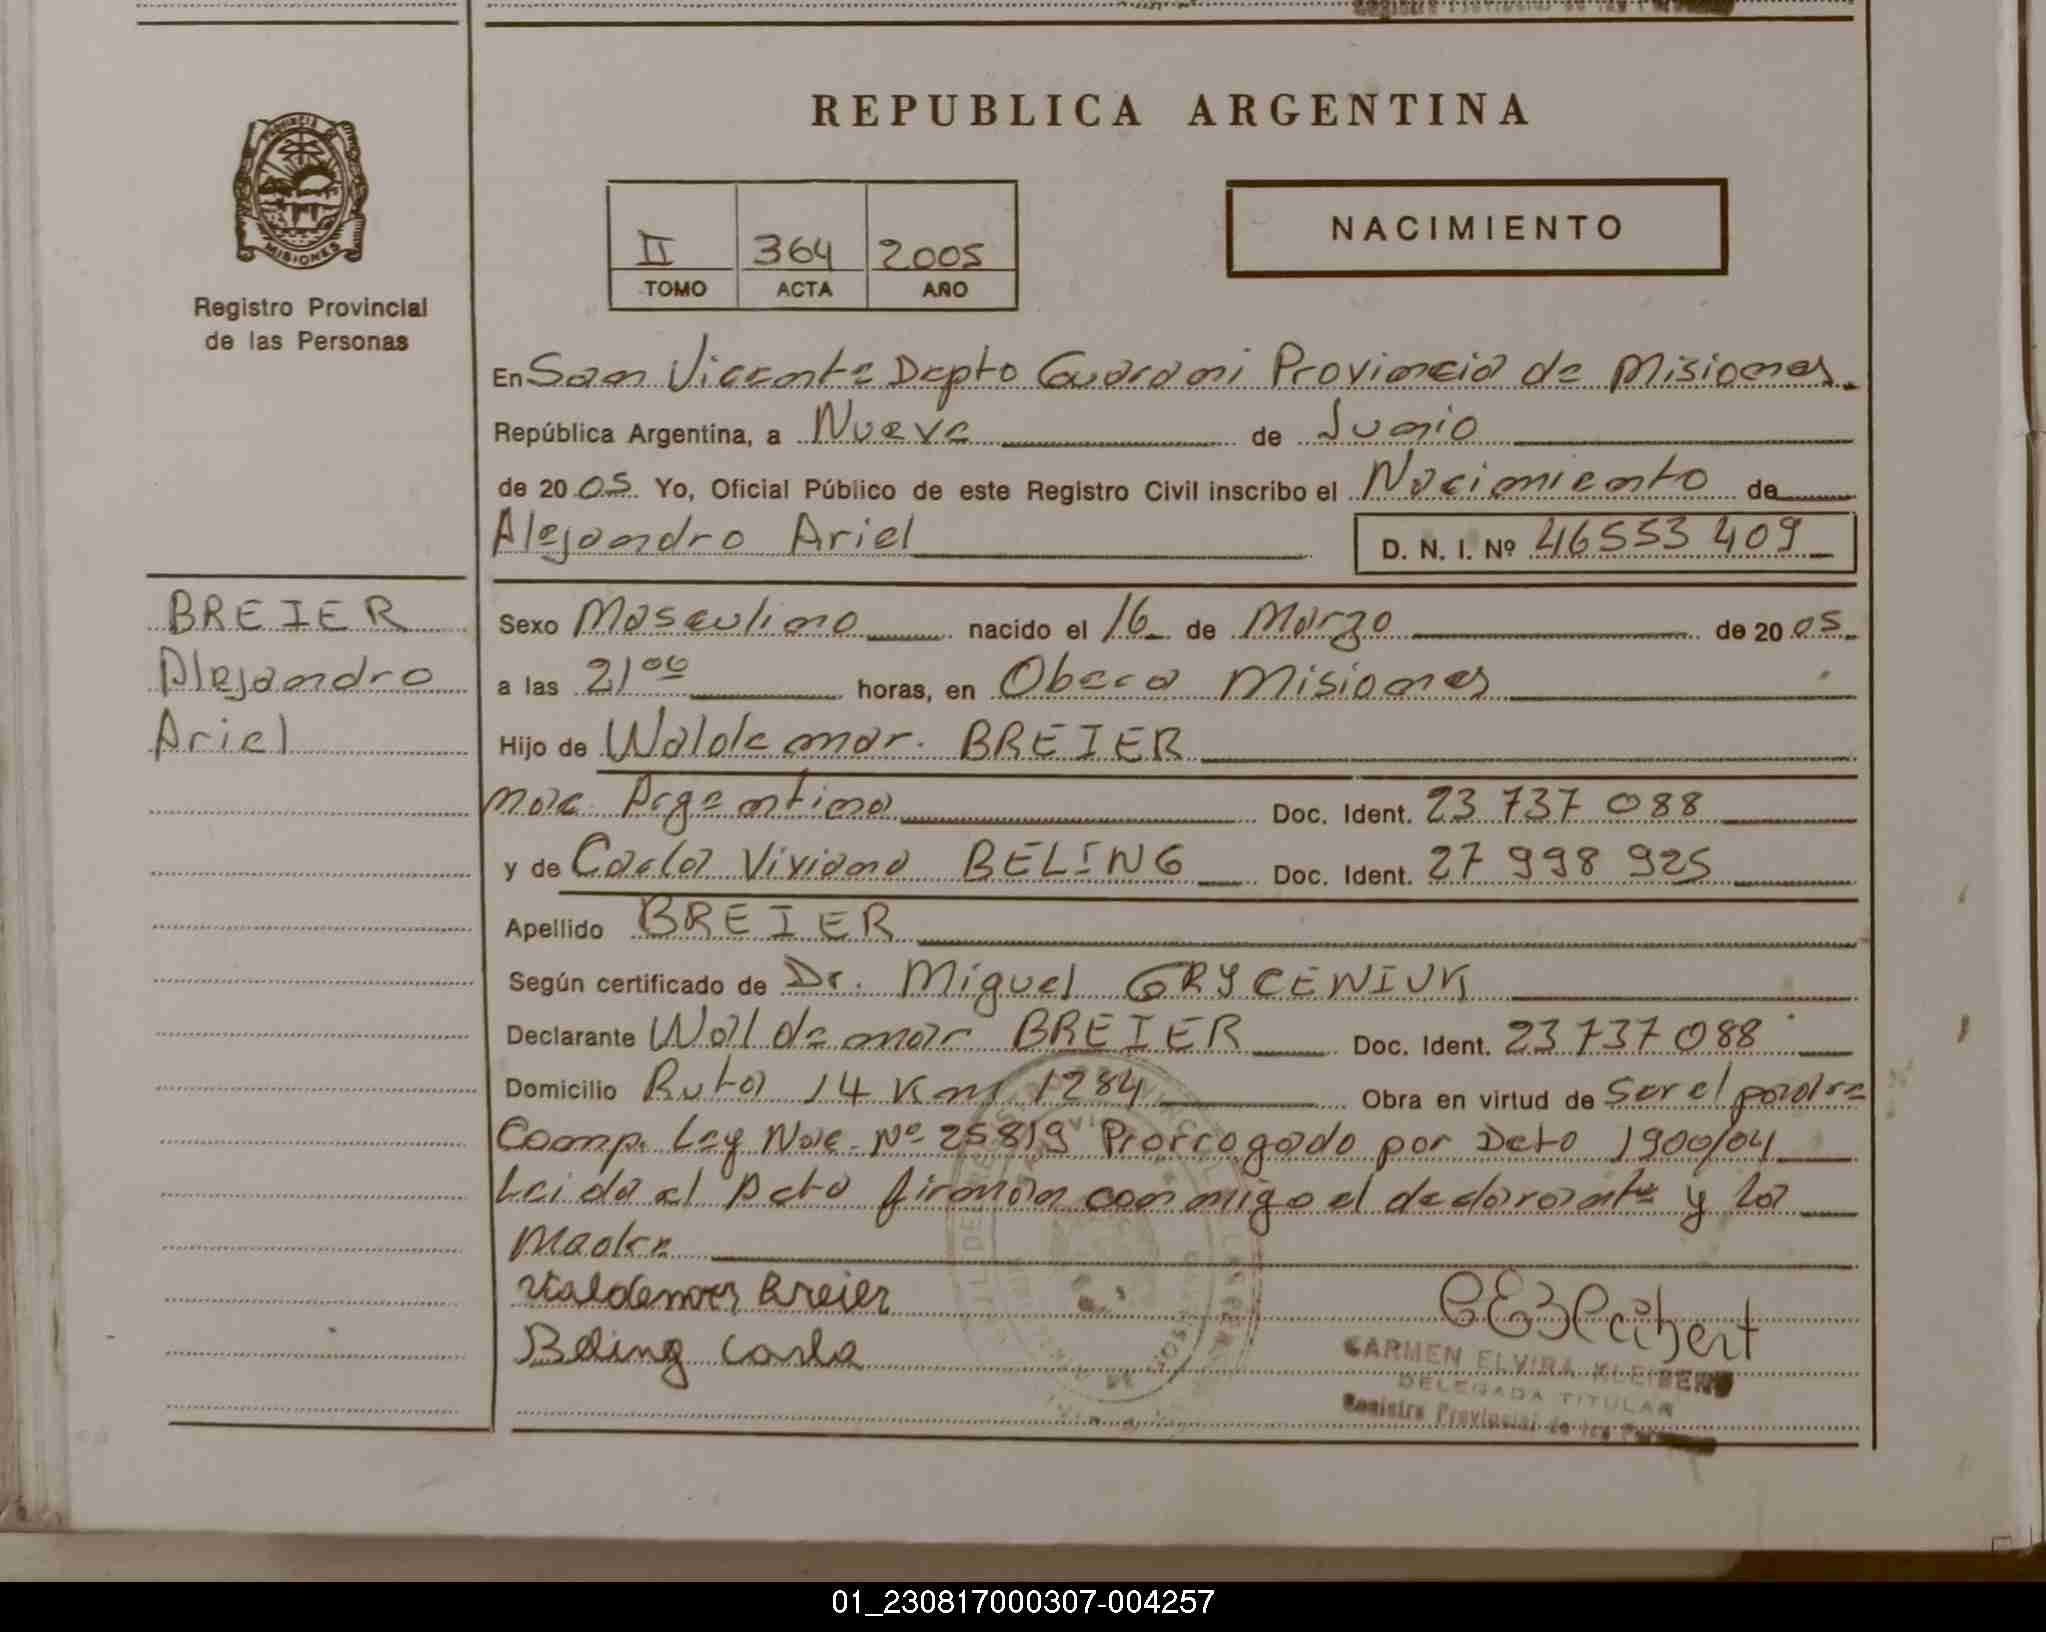 REPUBLICA ARGENTINA
PROVINCIA
MISIONES
Registro Provincial
de las Personas
II 364 2005
TOMO ACTA AÑO
NACIMIENTO
En San Vicente Depto Guarani Provincia de Misiones.
República Argentina, a Nueve de Junio
de 2005 Yo, Oficial Público de este Registro Civil inscribo el Nacimiento de
Alejandro Ariel D. N. I. Nº 46553409
BREIER
Alejandro
Ariel
Sexo Masculino nacido el 16 de Marzo de 2005
a las 21 00 horas, en Obera Misiones
Hijo de Waldemar BREIER
Nac Argentina Doc. Ident. 23 737 088
y de Carla Viviana BELING Doc. Ident. 27 998 925
Apellido BREIER
Según certificado de Dr. Miguel GRYCENIUK
Declarante Waldemar BREIER Doc. Ident. 23737088
Domicilio Ruta 14 Km 1284 Obra en virtud de Ser el padre
Comp. Ley Nac. Nº 25819 Prorrogado por Dcto 1900/04
Leida el Acta firman conmigo el declarante y la
Madre
Valdemar Breier
Beling Carla
CARMEN ELVIRA KLEIBERT
DELEGADA TITULAR
Registro Provincial de las
01_230817000307-004257